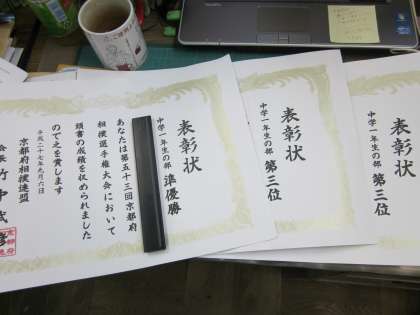 表彰状
中学一年生の部 準優勝
あなたは第五十三回京都府
相撲選手権大会において
頭書の成績を収められました
ので之を賞します
平成二十七年九月六日
京都府相撲連盟
表彰状
中学一年生の部 第三位
表彰状
中学一年生の部 第三位